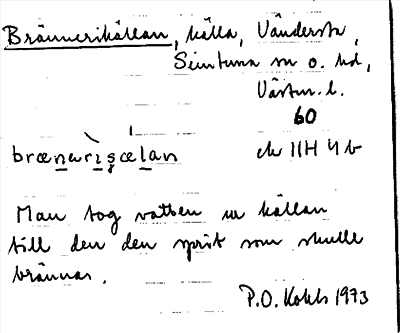 Brännerikällan, källa, Vänderste,
Simtuna sn o. hd,
Västm. l.
60
brænerìȿælan ek 11H 4b
Man tog vatten ur källan
till den den sprit som skulle
brännas.
P.O. Kohls 1973